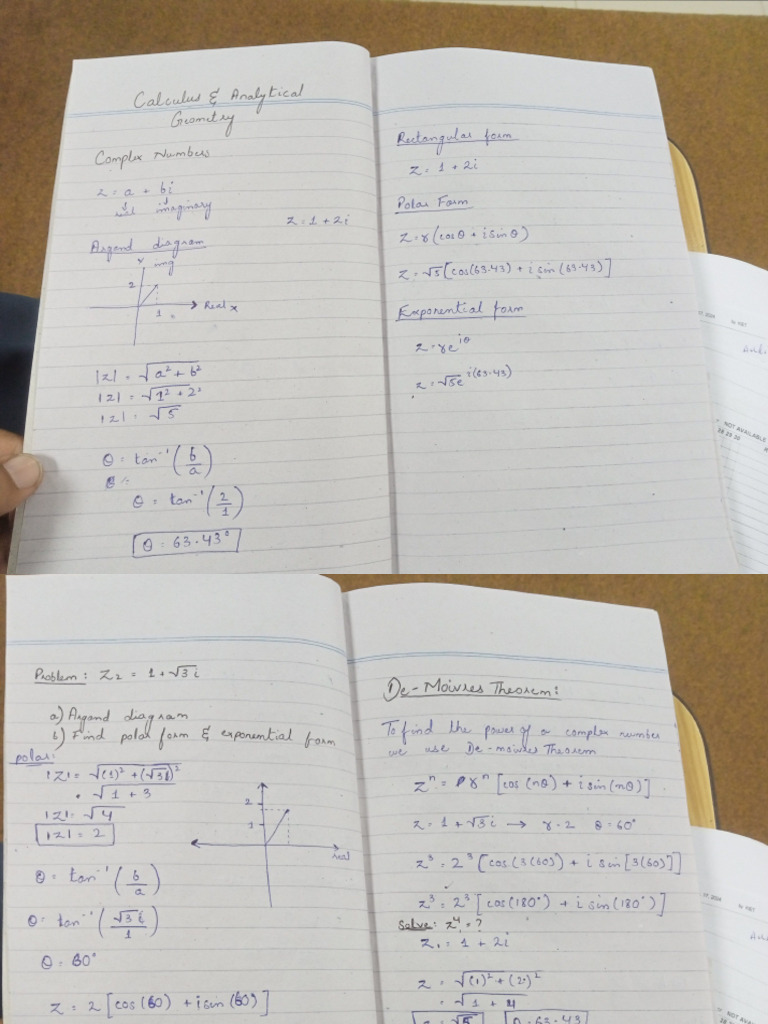 Calculus & Analytical
Geometry
Complex Numbers
z = a + bi
real imaginary
z = 1 + 2i
Argand diagram
y
img
2
Real x
1
|z| = √a² + b²
|z| = √1² + 2²
|z| = √5
θ = tan⁻¹ (b/a)
θ = tan⁻¹ (2/1)
θ = 63.43°
Rectangular form
z = 1 + 2i
Polar Form
z = r(cosθ + i sinθ)
z = √5 [cos(63.43) + i sin (63.43)]
Exponential form
z = re^iθ
z = √5e^i(63.43)
NOT AVAILABLE
28 29 30
Problem: z₂ = 1 + √3 i
a) Argand diagram
b) Find polar form & exponential form
polar:
|z| = √(1)² + (√3i)²
√1 + 3
|z| = √4
|z| = 2
2
1
real
θ = tan⁻¹ (b/a)
θ = tan⁻¹ (√3i/1)
θ = 60°
z = 2 [cos(60) + i sin(60)]
De-Moivres Theorem:
To find the power of a complex number
we use De-moivres Theorem
zⁿ = rⁿ [cos (nθ) + i sin(nθ)]
z = 1 + √3 i → r = 2 θ = 60°
z³ = 2³ [cos(3(60)) + i sin[3(60)]]
z³ = 2³ [cos(180°) + i sin(180°)]
Solve: z⁴ = ?
z₁ = 1 + 2i
z = √(1)² + (2)²
= √1 + 4
= √5 θ = 63.43
NOT AVAILABLE
28 29 30